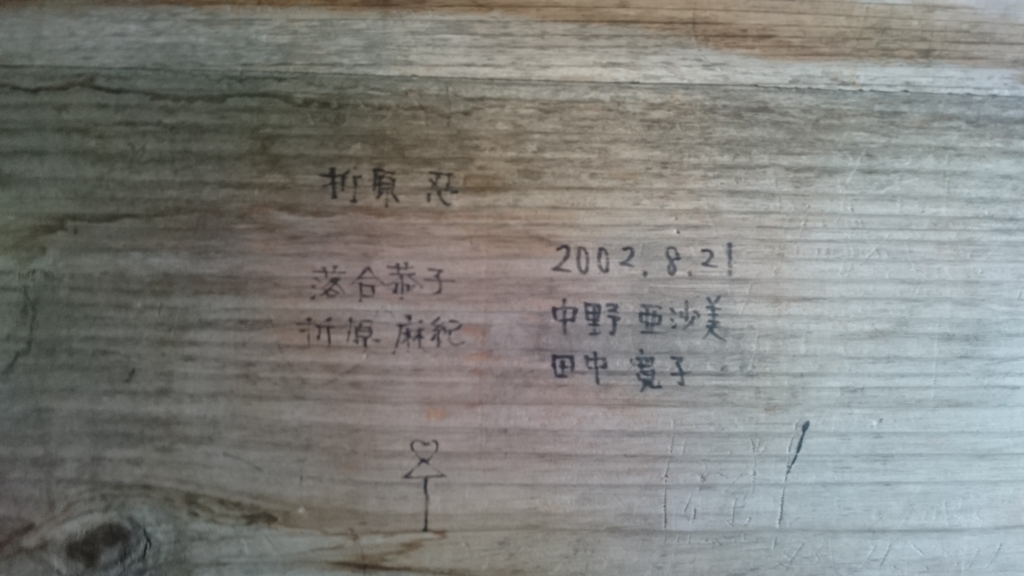 折原 忍
落合恭子
折原 麻紀
2002.8.21
中野 亜沙美
田中 寛子